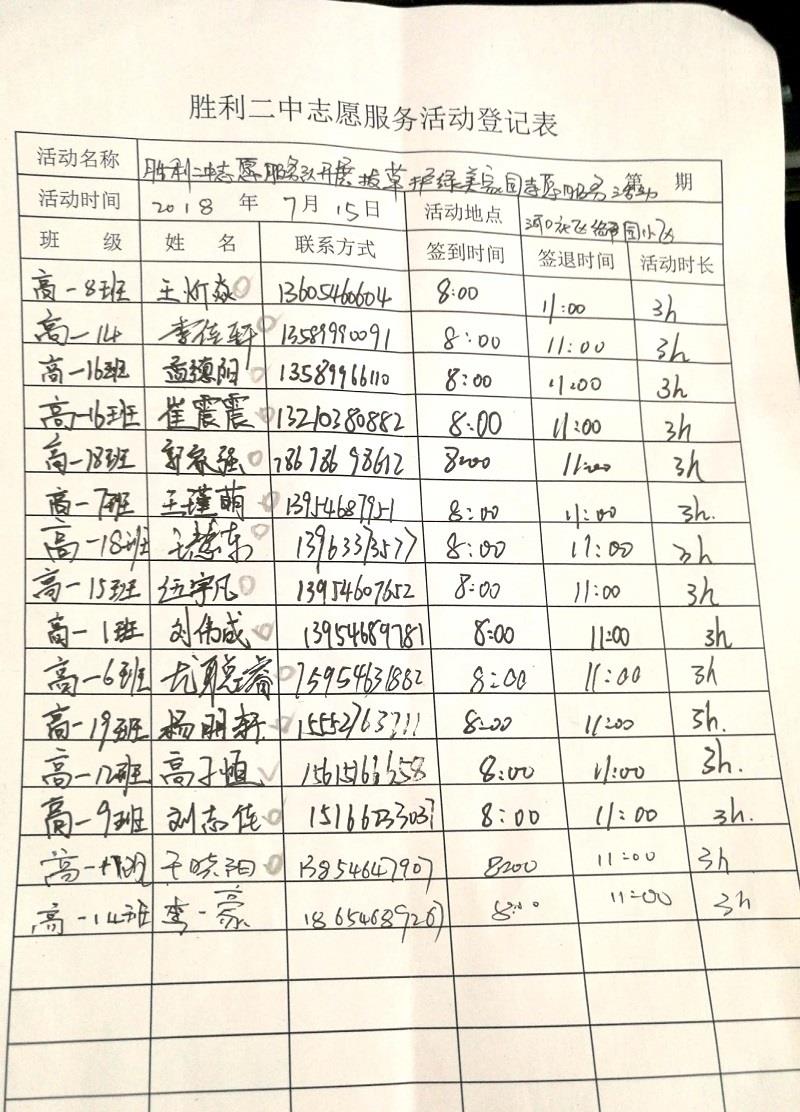 胜利二中志愿服务活动登记表
活动名称 胜利二中志愿服务队开展拔草护绿美家园志愿服务活动 第 期
活动时间 2018 年 7月 15日 活动地点
班 级 姓 名 联系方式 签到时间 签退时间 活动时长
高一8班 王忻焱 13605460604 8:00 11:00 3h
高一14 李佳轩 13589990091 8:00 11:00 3h
高一16班 孟德阳 13589966110 8:00 11:00 3h
高一16班 崔震震 13210380882 8:00 11:00 3h
高一18班 郭家强 78678698612 8:00 11:00 3h
高一7班 王瑾萌 13954687951 8:00 11:00 3h.
高一18班 王慧东 13963373577 8:00 11:00 3h
高一15班 伍宇凡 13954607652 8:00 11:00 3h
高一1班 刘伟成 13954689781 8:00 11:00 3h
高一6班 尤聪睿 15954631882 8:00 11:00 3h
高一19班 杨明轩 15552763711 8:00 11:00 3h.
高一12班 高子恒 8:00 11:00 3h.
高一9班 刘志佳 8:00 11:00 3h.
高一 班 王晓阳 13854647907 8:00 11:00 3h
高一14班 李一豪 18654689267 8:00 11:00 3h